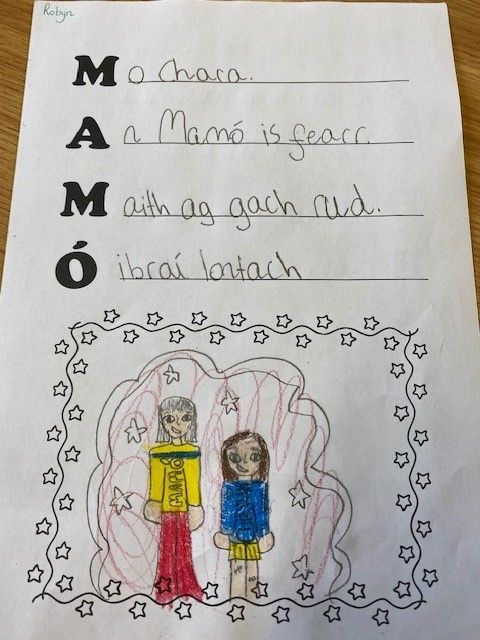 Robyn
Mo chara.
An Mamó is fearr.
Maith ag gach rud.
Óibraí lontach
MAMÓ